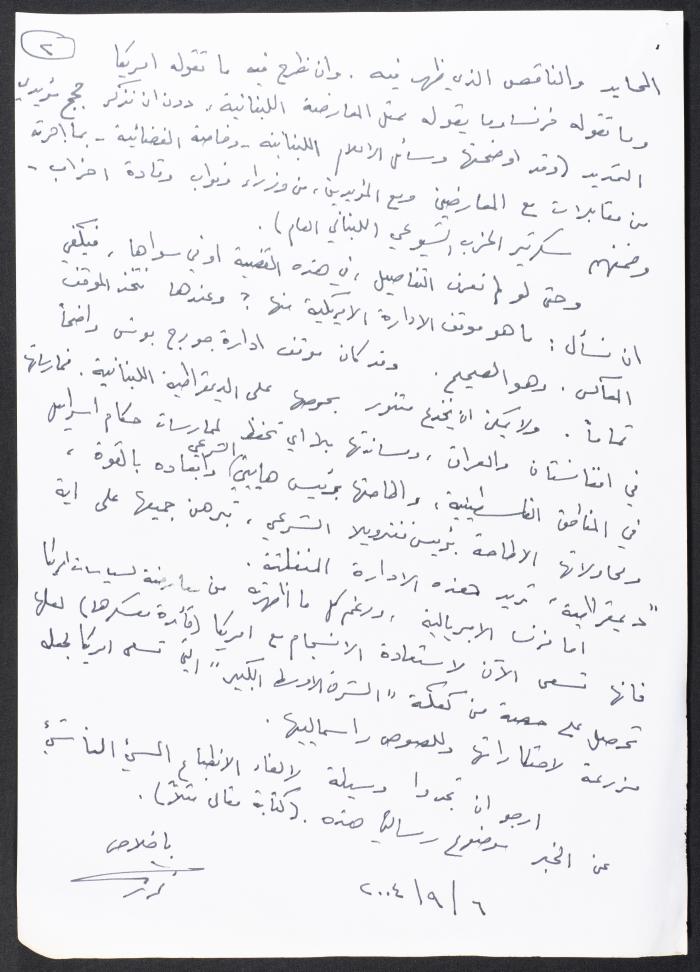 ٢
المحايد والناقص الذي ظهر فيه . وان نطرح فيه ما تقوله امريكا
وما تقوله فرنسا وما يقوله ممثل المعارضة اللبنانية، دون ان نذكر حجج مؤيدي
التمديد (وقد اوضحتها وسائل الاعلام اللبنانية - وخاصة الفضائية - بما اجرته
من مقابلات مع المعارضين ومع المؤيدين، من وزراء ونواب وقادة احزاب -
وضمنهم سكرتير الحزب الشيوعي اللبناني العام).
وحتى لو لم نعرف التفاصيل، في هذه القضية او في سواها، فيكفي
ان نسأل: ما هو موقف الادارة الامريكية منها؟ وعندها نتخذ الموقف
المعاكس. وهو الصحيح. وقد كان موقف ادارة جورج بوش واضحاً
تماماً. ولا يمكن ان يخدع متنور بحرصها على الديمقراطية اللبنانية. فممارساتها
في افغانستان والعراق، ومساندتها بلا اي تحفظ لممارسات حكام اسرائيل
في المناطق الفلسطينية، واطاحتها برئيس هاييتي الشرعي وابعاده بالقوة،
ومحاولاتها الاطاحة برئيس فنزويلا الشرعي، تبرهن جميعها على اية
"ديمقراطية" تريد هذه الادارة المنفلتة.
اما فرنسا الامبريالية، ورغم كل ما اظهرته من معارضة لسياسات امريكا
فانها تسعى الآن لاستعادة الانسجام مع امريكا (قائدة معسكرها) لعلها
تحصل على حصة من كعكة "الشرق الاوسط الكبير" التي تسعى امريكا لجعله
مزرعة لاحتكاراتها وللصوص راسمالييها.
ارجو ان تجدوا وسيلة لالغاء الانطباع السيئ الناشئ
عن الخبر موضوع رسالتي هذه. (كتابة مقال مثلاً).
باخلاص
٦/٩/٢٠٠٤